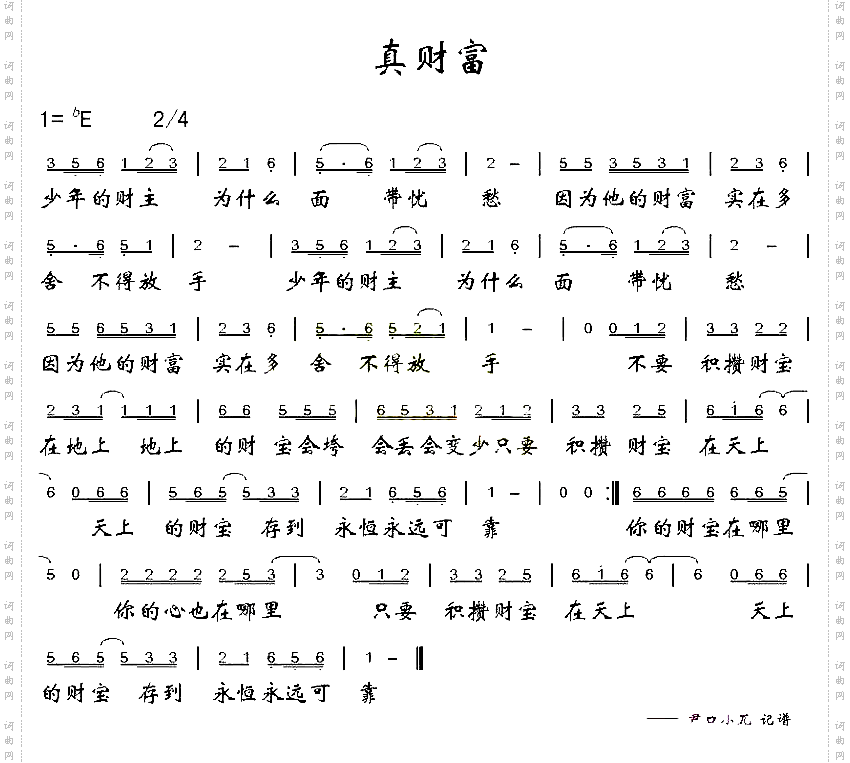 真财富
1= ♭E 2/4
3 5 6 1 2 3 | 2 1 6 | 5 · 6 1 2 3 | 2 – | 5 5 3 5 3 1 | 2 3 6 |
少年的财主 为什么 面 带忧 愁 因为他的财富 实在多
5 · 6 5 1 | 2 – | 3 5 6 1 2 3 | 2 1 6 | 5 · 6 1 2 3 | 2 – |
舍 不得放 手 少年的财主 为什么 面 带忧 愁
5 5 6 5 3 1 | 2 3 6 | 5 · 6 5 2 1 | 1 – | 0 0 1 2 | 3 3 2 2 |
因为他的财富 实在多 舍 不得放 手 不要 积攒财宝
2 3 1 1 1 1 | 6 6 5 5 5 | 6 5 3 1 2 1 2 | 3 3 2 5 | 6 1 6 6 |
在地上 地上 的财 宝会垮 会丢会变少只要 积攒 财宝 在天上
6 0 6 6 | 5 6 5 5 3 3 | 2 1 6 5 6 | 1 – | 0 0 :| 6 6 6 6 6 6 5 |
天上 的财宝 存到 永恒永远可 靠 你的财宝在哪里
5 0 | 2 2 2 2 2 5 3 | 3 0 1 2 | 3 3 2 5 | 6 1 6 6 | 6 0 6 6 |
你的心也在哪里 只要 积攒财宝 在天上 天上
5 6 5 5 3 3 | 2 1 6 5 6 | 1 – ‖
的财宝 存到 永恒永远可 靠
—— 尹口小兀 记谱
词曲网